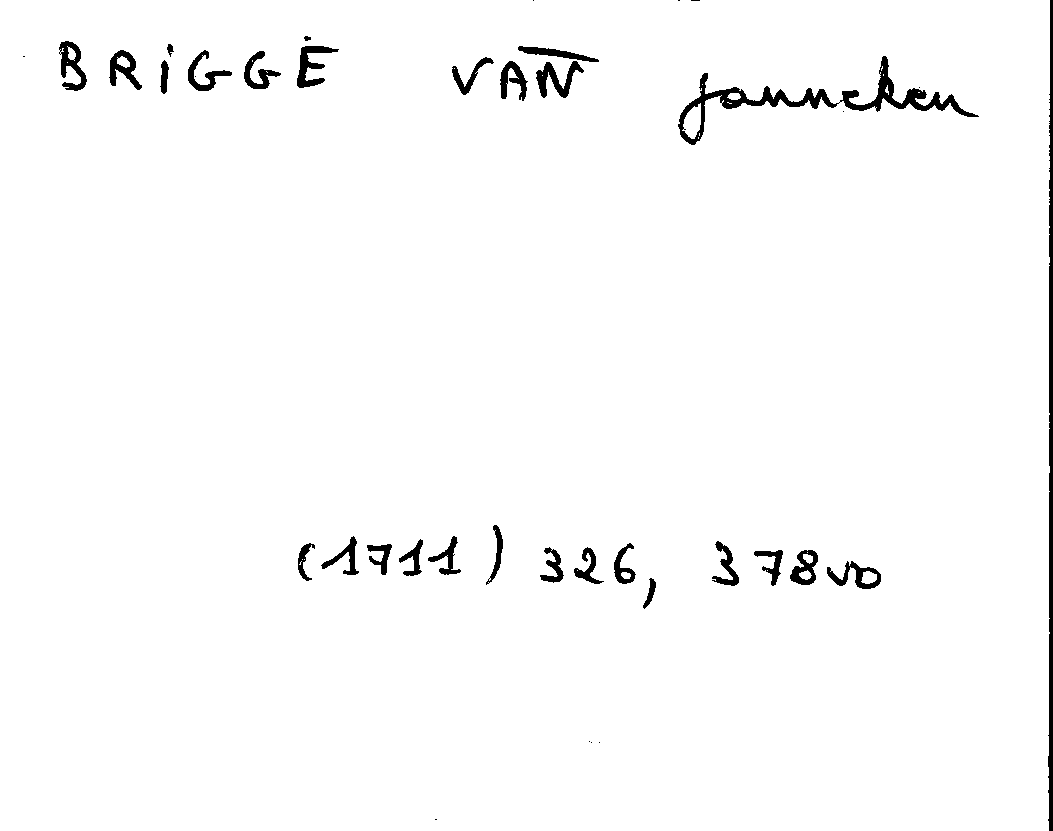 BRIGGE VAN Janneken
(1711) 326, 378vo